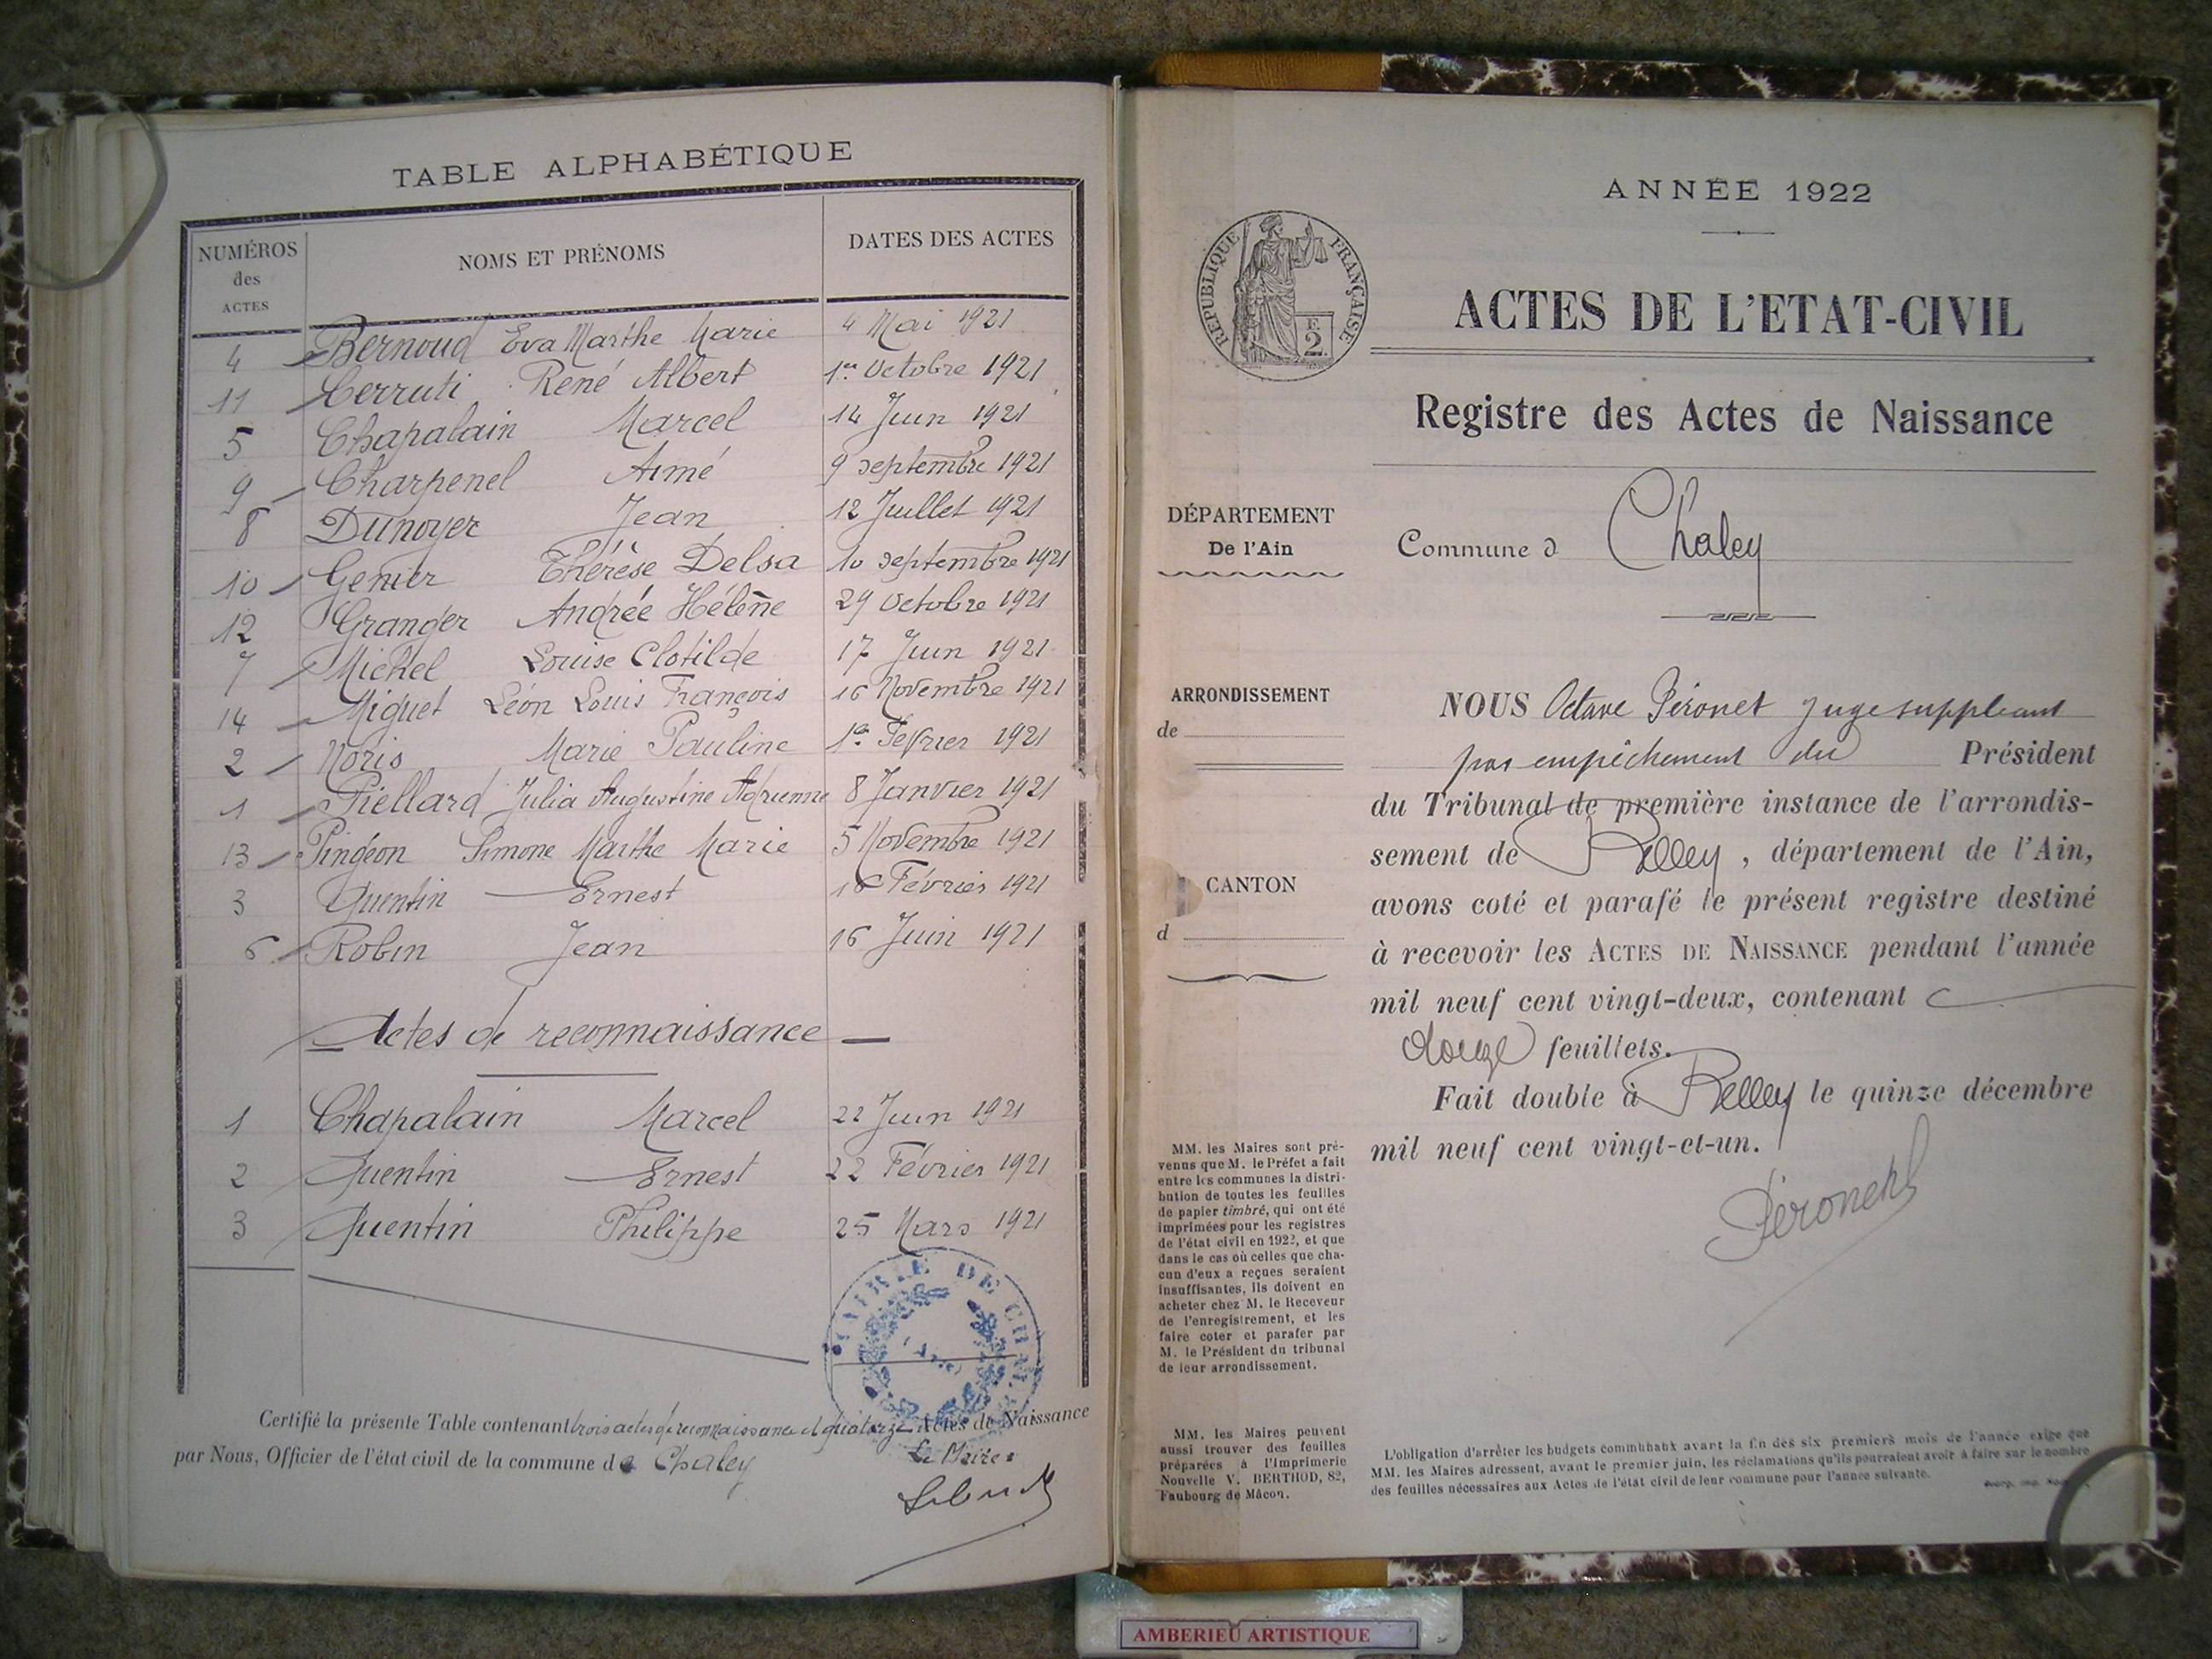 TABLE ALPHABÉTIQUE
NUMÉROS des ACTES NOMS ET PRÉNOMS DATES DES ACTES
4 Bernoud Eva Marthe Marie 4 Mai 1921
11 Cerruti René Albert 1er Octobre 1921
5 Chapalain Marcel 14 Juin 1921
9 Charpenel Aimé 9 septembre 1921
8 Dunoyer Jean 12 Juillet 1921
10 Genier Thérèse Delsa 10 septembre 1921
12 Granger Andrée Hélène 29 Octobre 1921
7 Michel Louise Clotilde 17 Juin 1921
14 Miguet Léon Louis François 16 Novembre 1921
2 Noris Marie Pauline 1er Février 1921
1 Piellard Julia Augustine Adrienne 8 Janvier 1921
13 Pingeon Simone Marthe Marie 5 Novembre 1921
3 Quentin Ernest Février 1921
6 Robin Jean 16 Juin 1921
Actes de reconnaissance
1 Chapalain Marcel 22 Juin 1921
2 Quentin Ernest 22 Février 1921
3 Quentin Philippe 25 Mars 1921
MAIRIE DE
Certifié la présente Table contenant trois actes de reconnaissance et quatorze Actes de Naissance
par Nous, Officier de l'état civil de la commune de Chaley
Le Maire
ANNÉE 1922
REPUBLIQUE FRANÇAISE
2
ACTES DE L'ETAT-CIVIL
Registre des Actes de Naissance
DÉPARTEMENT
De l'Ain
Commune d Chaley
ARRONDISSEMENT
de
CANTON
d
NOUS Octave Péronet Juge suppléant
par empêchement du Président
du Tribunal de première instance de l'arrondis-
sement de Belley, département de l'Ain,
avons coté et parafé le présent registre destiné
à recevoir les ACTES DE NAISSANCE pendant l'année
mil neuf cent vingt-deux, contenant
douze feuillets.
Fait double à Belley le quinze décembre
mil neuf cent vingt-et-un.
MM. les Maires sont pré-
venus que M. le Préfet a fait
entre les communes la distri-
bution de toutes les feuilles
de papier timbré, qui ont été
imprimées pour les registres
de l'état civil en 1922, et que
dans le cas où celles que cha-
cun d'eux a reçues seraient
insuffisantes, ils doivent en
acheter chez M. le Receveur
de l'enregistrement, et les
faire coter et parafer par
M. le Président du tribunal
de leur arrondissement.
MM. les Maires peuvent
aussi trouver des feuilles
préparées à l'Imprimerie
Nouvelle V. BERTHOD, 82,
Faubourg de Mâcon.
L'obligation d'arrêter les budgets communaux avant la fin des six premiers mois de l'année exige que
MM. les Maires adressent, avant le premier juin, les réclamations qu'ils pourraient avoir à faire sur le nombre
des feuilles nécessaires aux Actes de l'état civil de leur commune pour l'année suivante.
AMBERIEU ARTISTIQUE